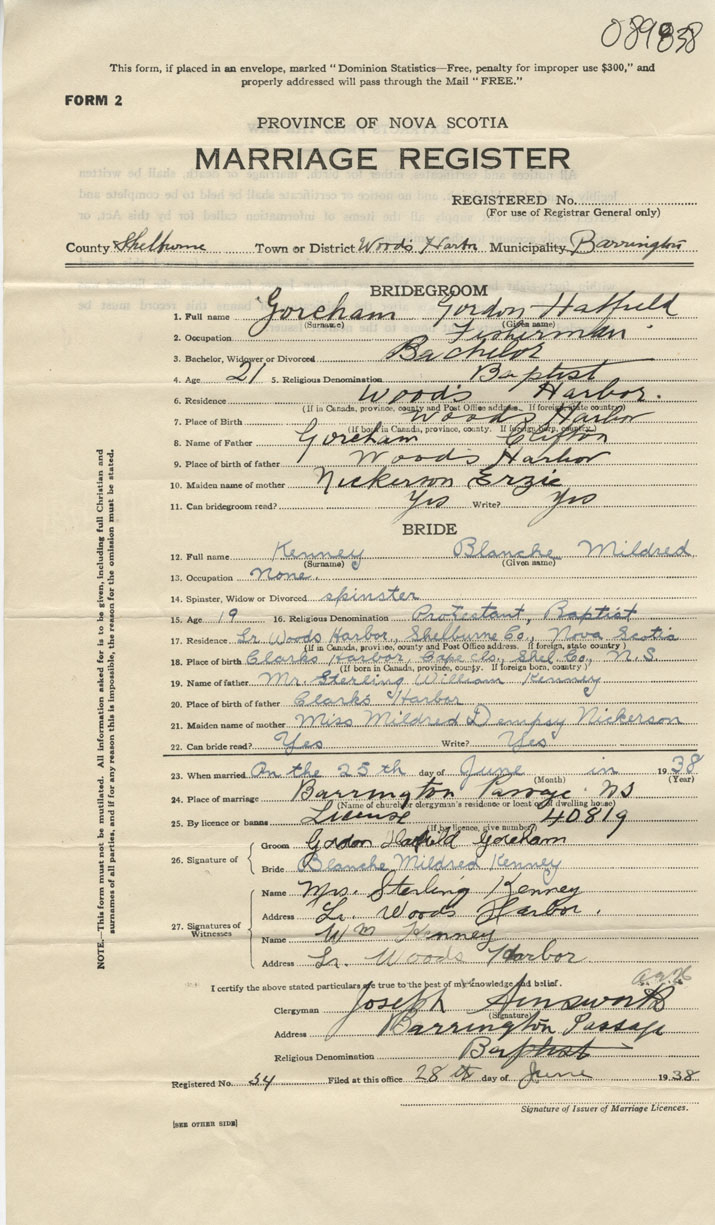 089838
This form, if placed in an envelope, marked "Dominion Statistics—Free, penalty for improper use $300," and
properly addressed will pass through the Mail "FREE."
FORM 2
PROVINCE OF NOVA SCOTIA
MARRIAGE REGISTER
REGISTERED No.
(For use of Registrar General only)
County Shelburne Town or District Woods Harbor Municipality Barrington
BRIDEGROOM
1. Full name Goreham Gordon Hatfield
(Surname) (Given name)
2. Occupation Fisherman
3. Bachelor, Widower or Divorced Bachelor
4. Age 21 5. Religious Denomination Baptist
6. Residence Woods Harbor.
(If in Canada, province, county and Post Office address. If foreign, state country)
7. Place of Birth Woods Harbor
(If born in Canada, province, county. If foreign born, country)
8. Name of Father Goreham Clifton
9. Place of birth of father Woods Harbor
10. Maiden name of mother Nickerson Erzie
11. Can bridegroom read? Yes Write? Yes
BRIDE
12. Full name Kenney Blanche Mildred
(Surname) (Given name)
13. Occupation None.
14. Spinster, Widow or Divorced spinster
15. Age 19 16. Religious Denomination Protestant, Baptist
17. Residence Lr Woods Harbor, Shelburne Co., Nova Scotia
(If in Canada, province, county and Post Office address. If foreign, state country)
18. Place of birth Clarks Harbor, Cape Is., Shel. Co., N.S.
(If born in Canada, province, county. If foreign born, country)
19. Name of father Mr. Sterling William Kenney
20. Place of birth of father Clarks Harbor
21. Maiden name of mother Miss Mildred Dempsy Nickerson
22. Can bride read? Yes Write? Yes
23. When married On the 25th day of June in 1938
(Month) (Year)
24. Place of marriage Barrington Passage NS
(Name of church or clergyman's residence or location of dwelling house)
25. By licence or banns License 40819
(If by licence, give number)
26. Signature of
Groom Gordon Hatfield Goreham
Bride Blanche Mildred Kenney
27. Signatures of Witnesses
Name Mrs. Sterling Kenney
Address Lr. Woods Harbor.
Name Wm Kenney
Address Lr. Woods Harbor
I certify the above stated particulars are true to the best of my knowledge and belief.
Clergyman Joseph Ainsworth
(Signature)
Address Barrington Passage
Religious Denomination Baptist
Registered No. 54 Filed at this office 28th day of June 1938
Signature of Issuer of Marriage Licences.
[SEE OTHER SIDE]
NOTE.—This form must not be mutilated. All information asked for is to be given, including full Christian and
surnames of all parties, and if for any reason this is impossible, the reason for the omission must be stated.